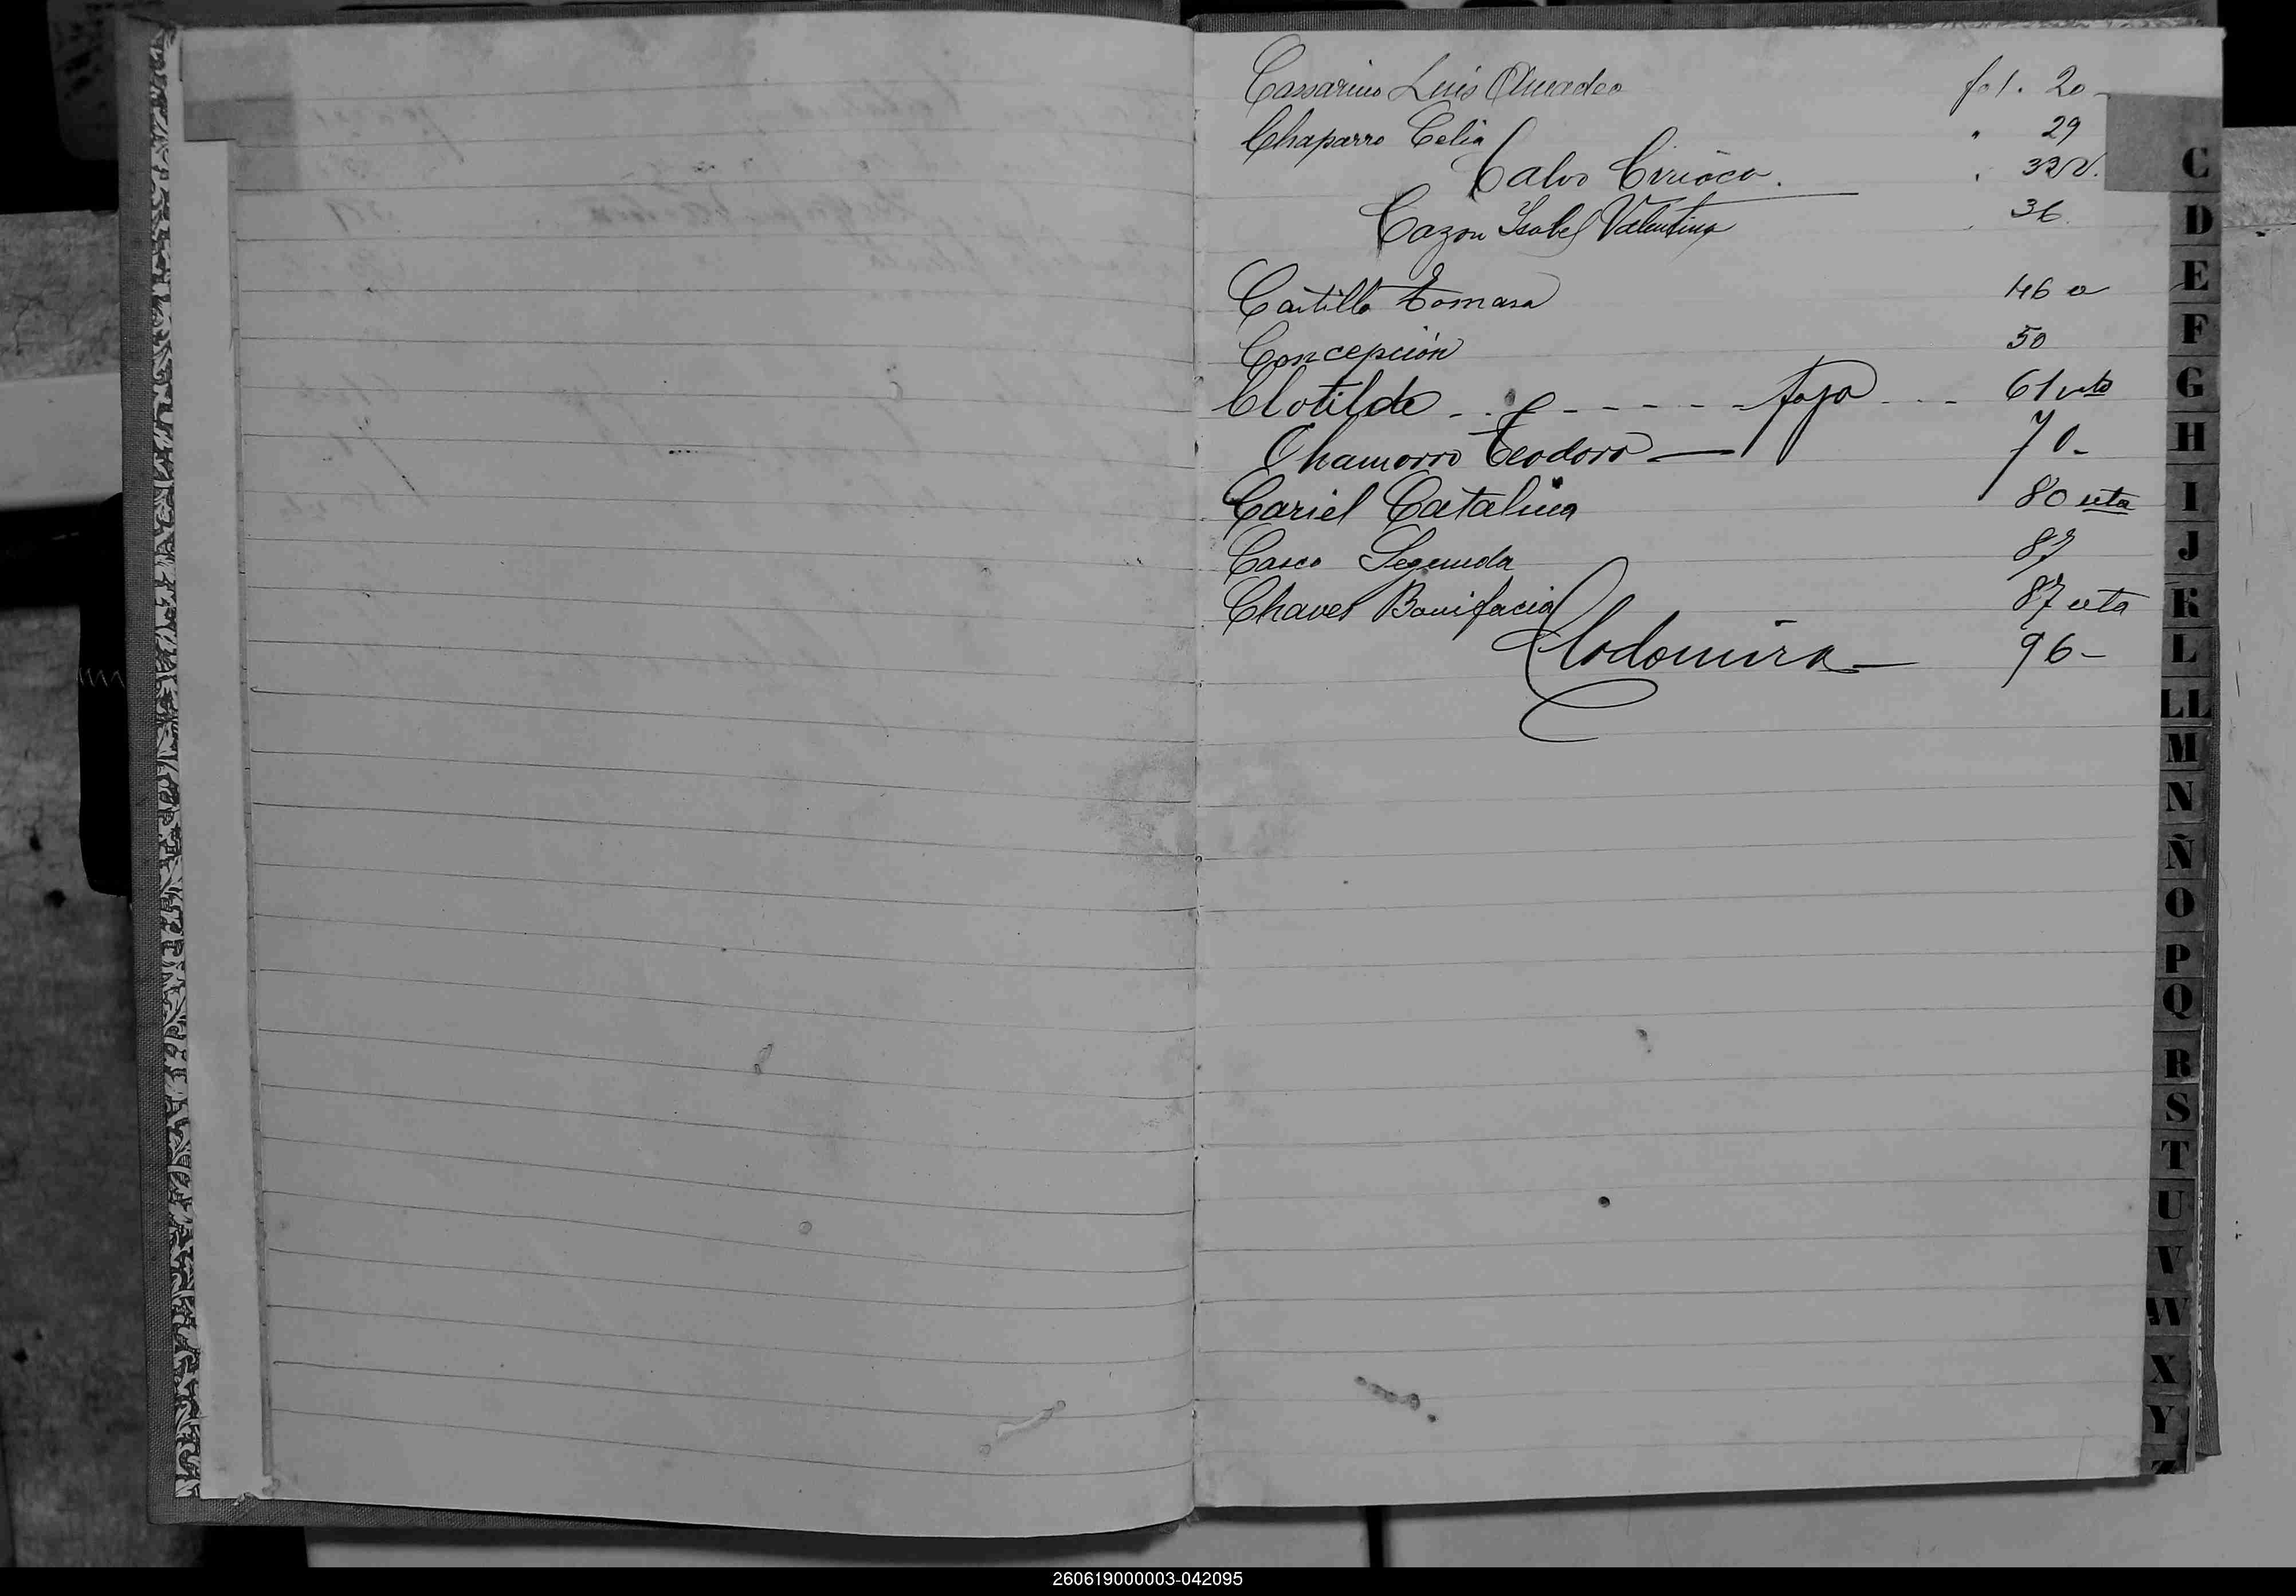 Cassarino Luis Amadeo fol. 20-
Chaparro Celia " 29
Calvo Ciriaca. " 32 v.
Cazon Isabel Valentina 36
Castillo Tomasa 46 v
Concepción 50
Clotilde - - - - - - - foja - - - 61 vto
Chamorro Teodoro — 70-
Cariel Catalina 80 vta
Casco Segunda 87
Chaves Bonifacia 87 vta
Clodomira — 96-
C
D
E
F
G
H
I
J
K
L
LL
M
N
Ñ
O
P
Q
R
S
T
U
V
W
X
Y
Z
260619000003-042095